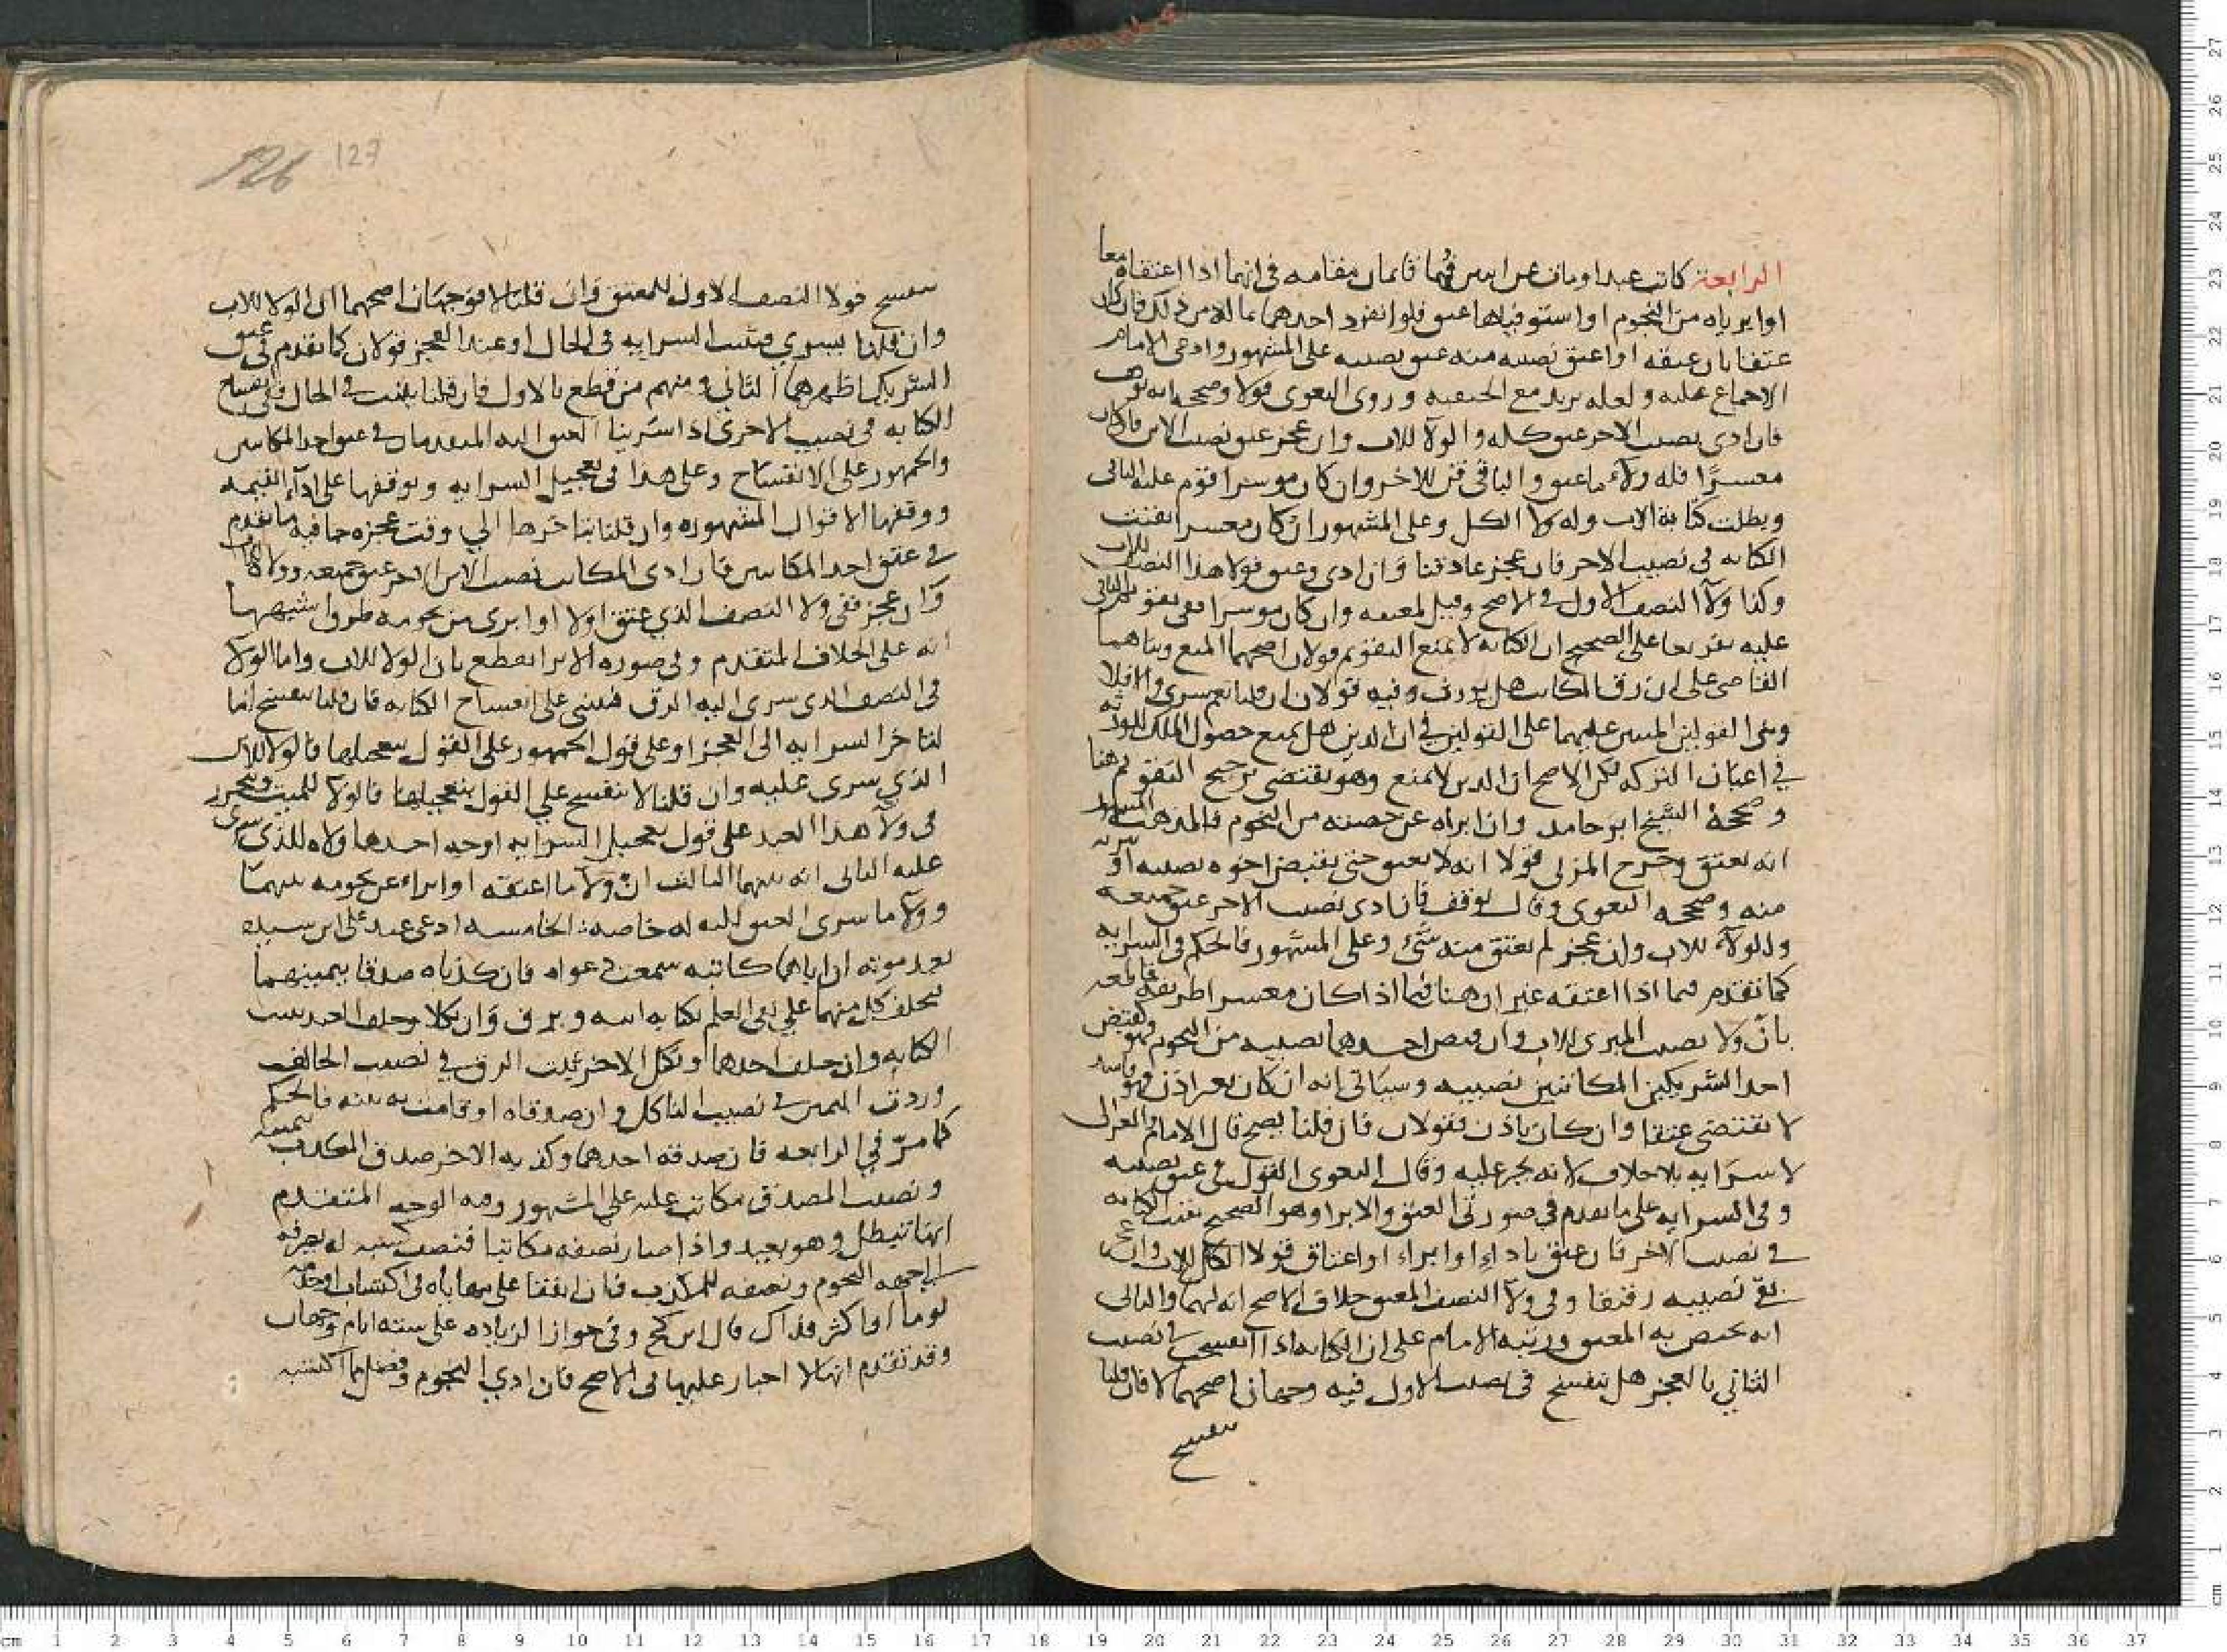 الرابعة كاتب عبدا ومات عن ابنين فهما قائمان مقامه في انهما اذا اعتقاه معا
او ابرياه من النجوم او استوفياها عتق فلو انفرد احدهما بما له من ذلك فان كان
عتقا بان عتقه او اعتق نصيبه منه عتق نصيبه على المشهور وادعى الامام
الاجماع عليه ولعله يريد مع الحنفيه وروى البغوى قولا وصححه انه توقف
فان ادى نصيب الاخر عتق كله والولآ للاب وان عجز عتق نصيب الابن فان كان
معسرًا فله ولاء ما عتق والباقي قن للاخر وان كان موسرا قوم عليه الباقى
وبطلت كتابة الاب وله ولا الكل وعلى المشهور ان كان معسرا بقيت
الكتابه في نصيب الاخر فان عجز عاد قنا وان ادى وعتق فولا هذا النصف للاب
وكذا ولآ النصف الاول في الاصح وقيل لمعتقه وان كان موسرا ففى تقويم الباقى
عليه تفريعا على الصحيح ان الكتابه لا تمنع التقويم قولان اصحهما المنع وبناهما
القاضى على ان رق المكاتب هل يورث وفيه قولان ان قلنا نعم سرى والا فلا
وعلى القولين المبنى عليهما على القولين في ان الدين هل يمنع حصول الملك للورثه
في اعيان التركه لكن الاصح ان الدين لا يمنع وهو يقتضى ترجيح التقويم هنا
وصححه الشيخ ابو حامد وان ابراه عن حصته من النجوم فالمذهب المشهور
انه يعتق وخرج المزنى قولا انه لا يعتق حتى يقبض اخوه نصيبه او يبريه
منه وصححه البغوى وقال يوقف فان ادى نصيب الاخر عتق جميعه
والولآء للاب وان عجز لم يعتق منه شىء وعلى المشهور فالحكم في السرايه
كما تقدم فيما اذا اعتقه غير ان هنا فيما اذا كان معسرا طريقه قاطعه
بان ولا نصيب المبرى للاب وان قبض احدهما نصيبه من النجوم فهو كقبض
احد الشريكين المكاتبين نصيبه وسياتى انه ان كان بغير اذن فهو فاسد
لا يقتضى عتقا وان كان باذن فقولان فان قلنا يصح قال الامام والغزالى
لا سرايه بلا خلاف لانه يجبر عليه وقال البغوى القول في عتق نصيبه
وفى السرايه على ما تقدم في صورتى العتق والابرا وهو الصحيح بقيت الكتابه
في نصيب الاخر فان عتق باداء او ابراء او اعتاق فولا الكل للاب وان عجز
بقى نصيبه رقيقا وفى ولآ النصف المعتق خلاف الاصح انه لهما والثانى
انه يختص به المعتق ورتبه الامام على ان الكتابه اذا انفسخت في نصيب
الثاني بالعجز هل تنفسخ في نصيب الاول فيه وجهان اصحهما لا فان قلنا
تنفسخ
تنفسخ فولا النصف الاول للمعتق وان قلنا لا فوجهان اصحهما ان الولا للاب
وان قلنا يسرى فتثبت السرايه في الحال او عند العجز قولان كما تقدم في عتق
الشريك اظهرهما الثاني ومنهم من قطع بالاول فان قلنا يثبت في الحال ففى انفساخ
الكتابه في نصيب الاخرى اذا سرينا العتق اليه المتقدمان في عتق احد المكاتبين
والجمهور على الانفساخ وعلى هذا في تعجيل السرايه وتوقفها على اداء القيمه
ووقفها الاقوال المشهوره وان قلنا بتاخرها الي وقت عجزه جا فيه ما تقدم
في عتق احد المكاتبين فان ادى المكاتب نصيب الابن الاخر عتق جميعه وولاؤه للاب
وان عجز ففى ولا النصف الذي عتق اولا او ابرى من نجومه طرق اشبهها
انه على الخلاف المتقدم وفى صوره الابرا يقطع بان الولا للاب واما الولا
في النصف الذى سرى اليه الرق فيبنى على انفساخ الكتابه فان قلنا تنفسخ اما
لتاخر السرايه الى العجز او على قول الجمهور على القول بتعجيلها فالولا للابن
الذي سرى عليه وان قلنا لا تنفسخ على القول بتعجيلها فالولآ للميت ويتحرر
في ولآ هذا العبد على قول تعجيل السرايه اوجه احدها ولاه للذى سرى
عليه الثانى انه بينهما الثالث ان ولآ ما اعتقه او ابراء عن نجومه بينهما
وولآ ما سرى العتق اليه له خاصه: الخامسه ادعى عبد على ابنى سيده
بعد موته ان اباهما كاتبه سمعت دعواه فان كذباه صدقا بيمينهما
يحلف كل منهما على نفى العلم بكتابة ابيه ويرق وان نكلا وحلف العبد ثبتت
الكتابه وان حلف احدهما ونكل الاخر ثبت الرق في نصيب الحالف
وردت اليمين في نصيب الناكل وان صدقاه او قامت به بينه فالحكم
كما مرّ في الرابعه فان صدقه احدهما وكذبه الاخر صدق المكذب بيمينه
ونصيب المصدق مكاتب عليه على المشهور وفيه الوجه المتقدم
انها تبطل وهو بعيد واذا صار نصفه مكاتبا فنصف كسبه له يصرفه
الى جهه النجوم ونصفه للمكذب فان اتفقا على مهاياه في اكتساب احدهما
يوما او اكثر فذاك قال ابن كج وفى جواز الزياده على سته ايام وجهان
وقد تقدم انها لا اجبار عليها في الاصح فان ادي النجوم وفضل مما اكتسبه
126 127